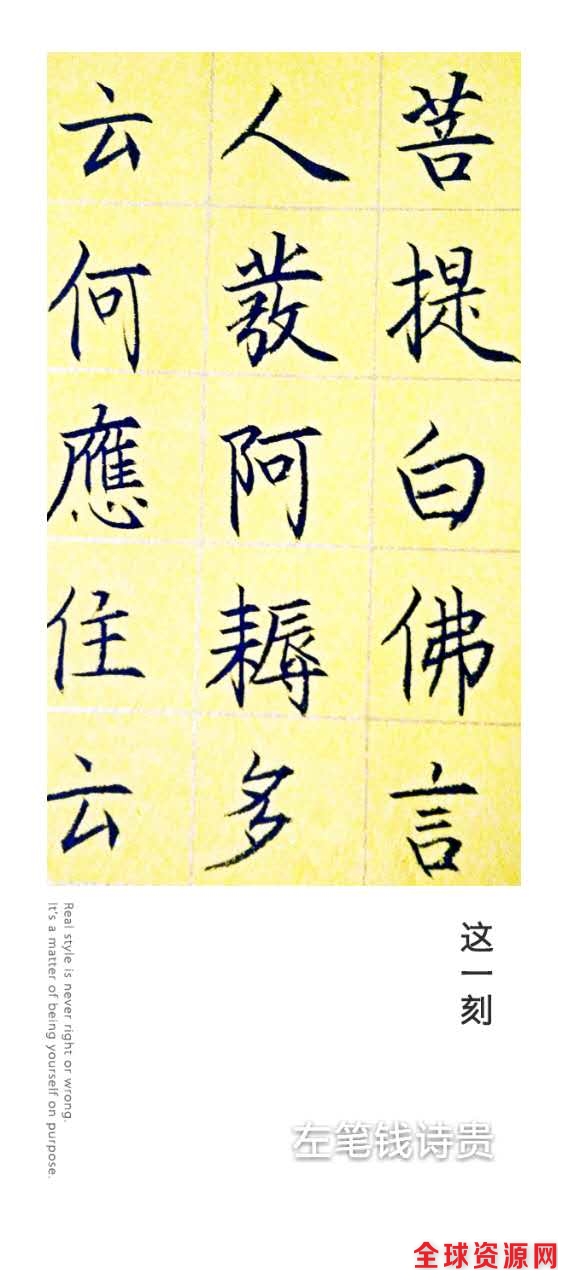 菩提白佛言
人發阿耨多
云何應住云
这一刻
Real style is never right or wrong.
It's a matter of being yourself on purpose.
左笔钱诗贵
全球资源网